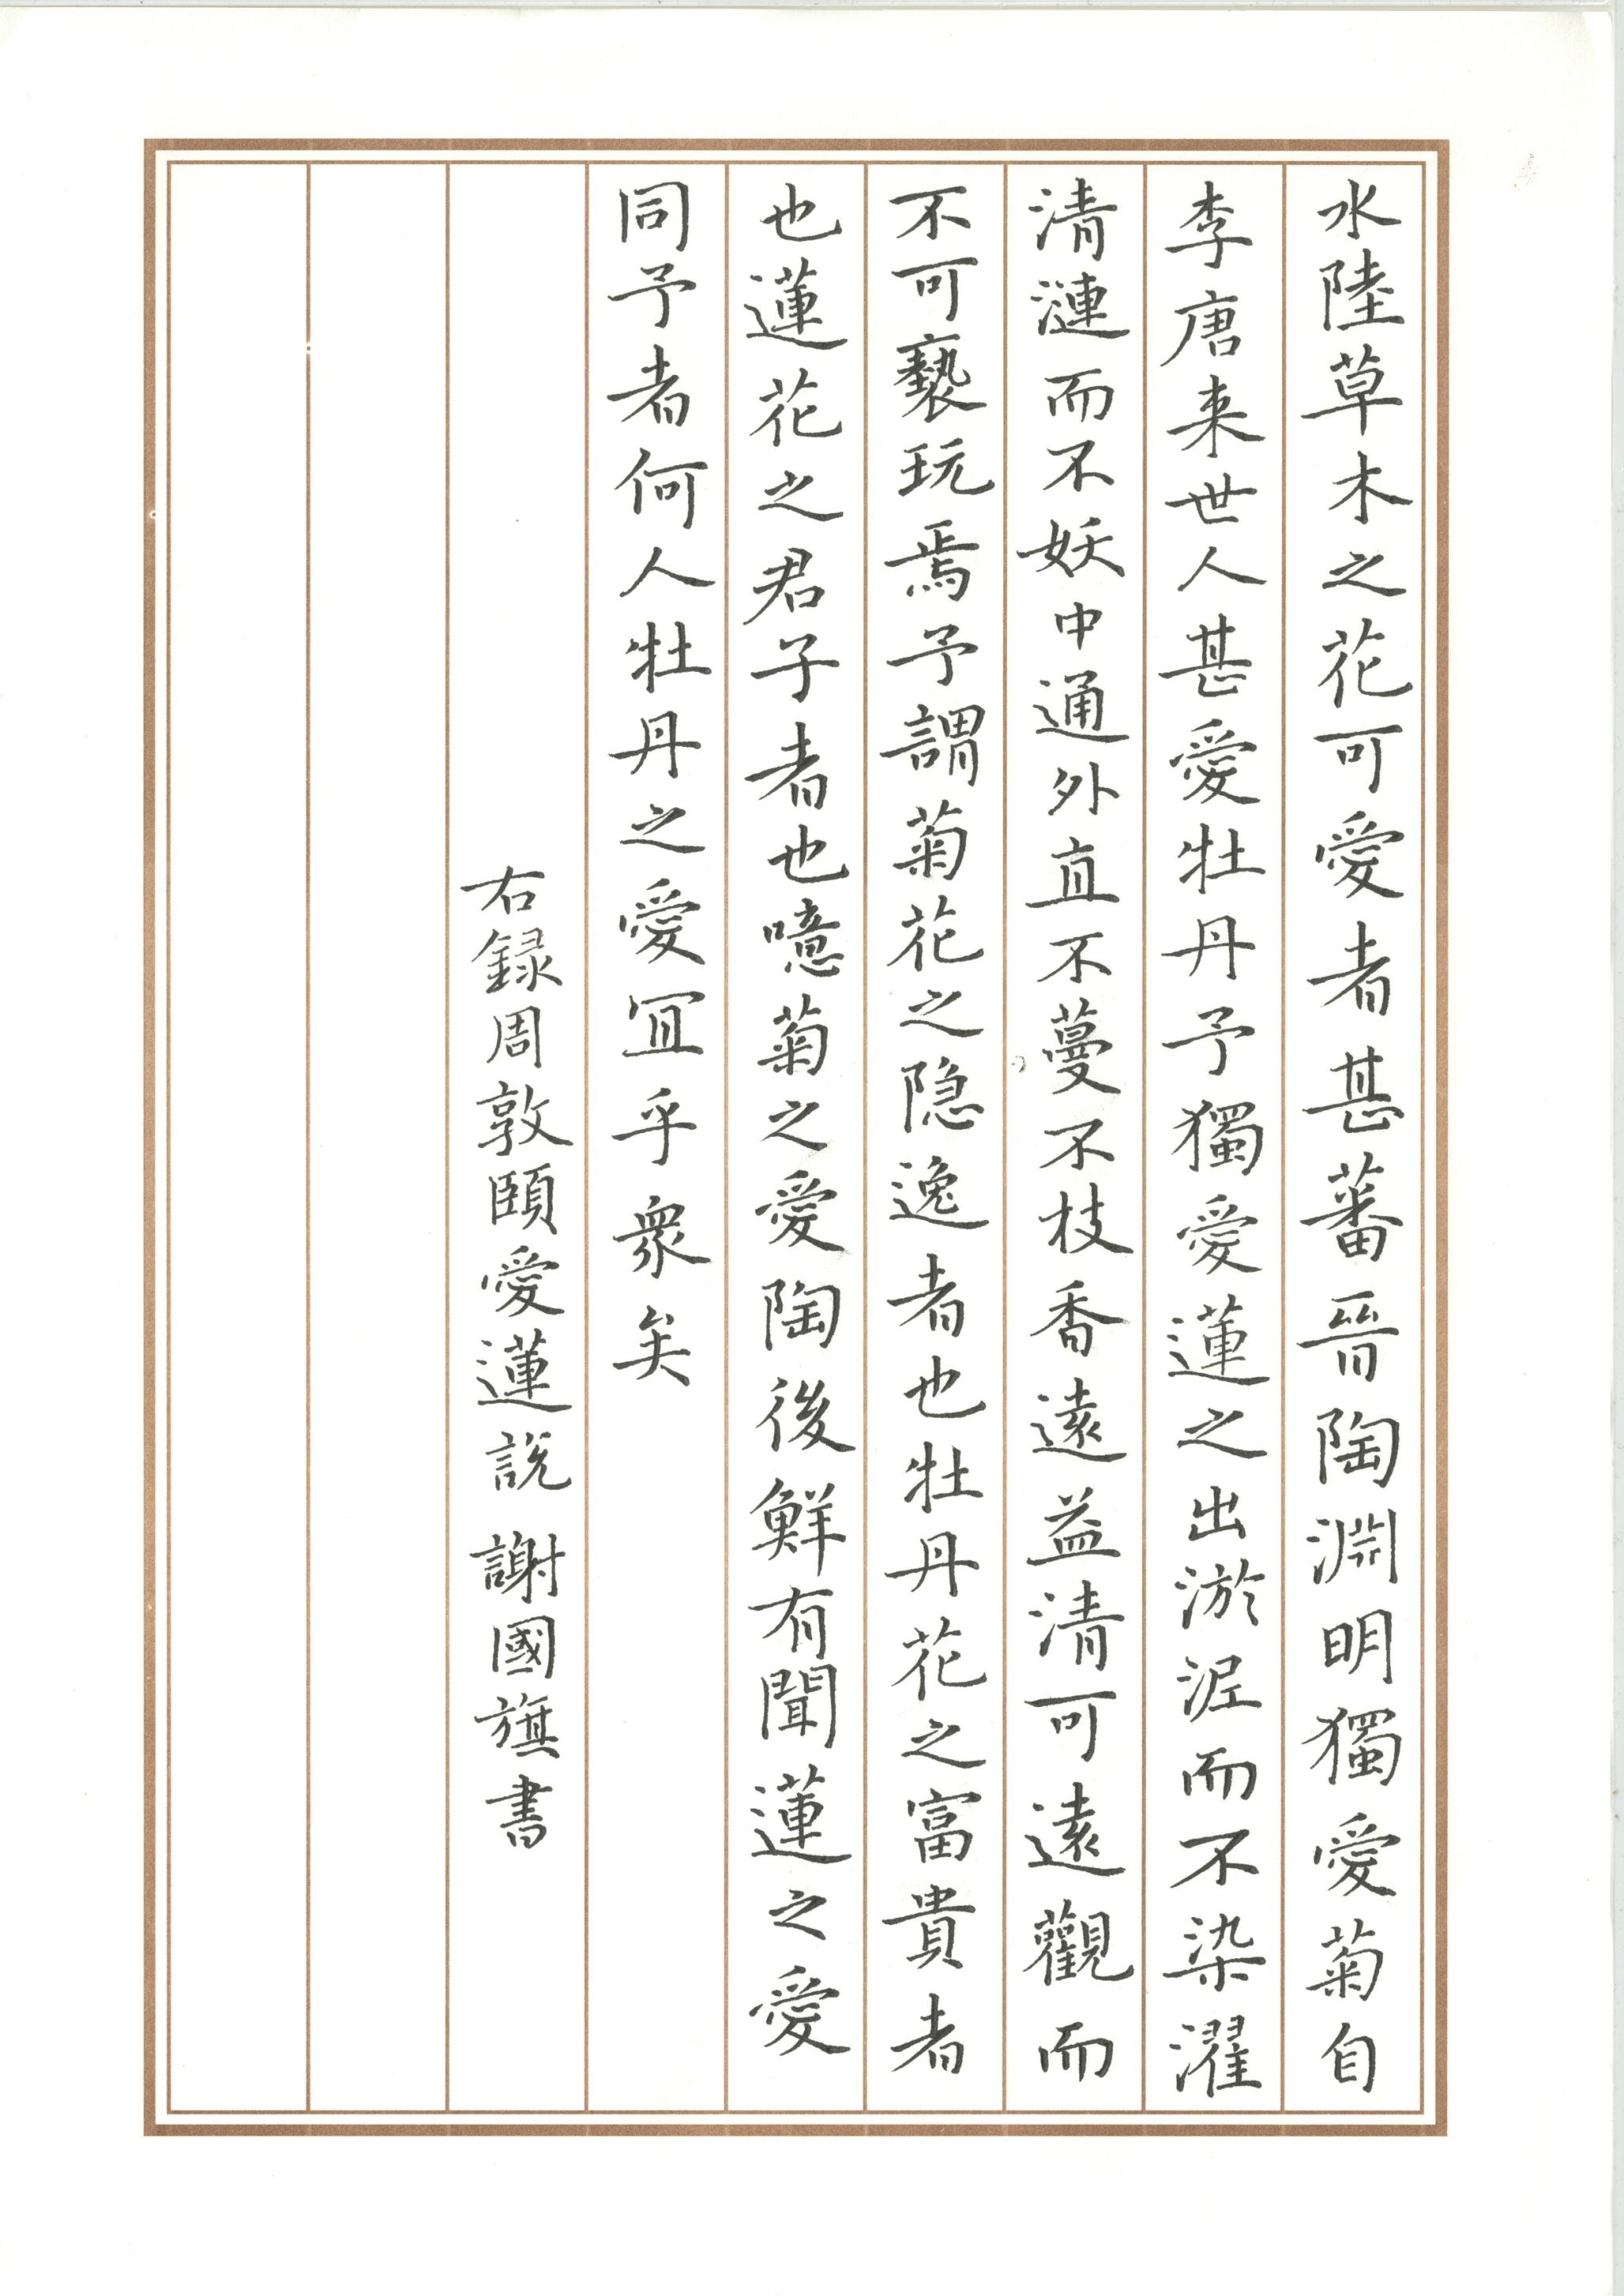 水陸草木之花可愛者甚蕃晉陶淵明獨愛菊自
李唐来世人甚愛牡丹予獨愛蓮之出淤泥而不染濯
清漣而不妖中通外直不蔓不枝香遠益清可遠觀而
不可褻玩焉予謂菊花之隐逸者也牡丹花之富貴者
也蓮花之君子者也噫菊之愛陶後鮮有聞蓮之愛
同予者何人牡丹之愛冝乎衆矣
右録周敦頤愛蓮説 謝國旗書